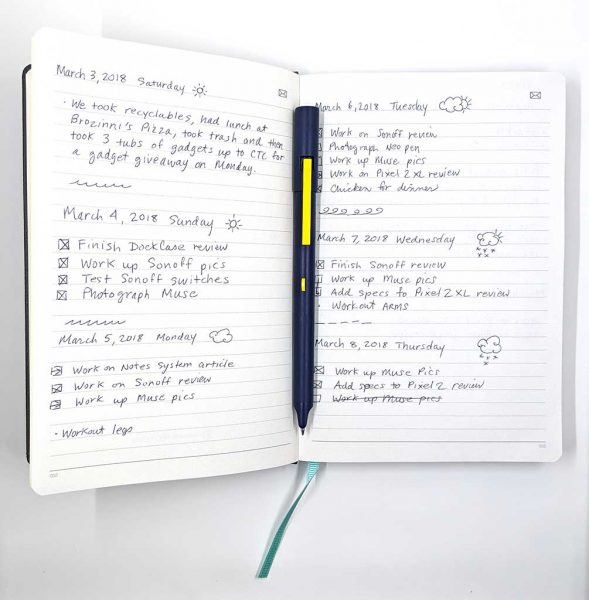 March 3, 2018 Saturday
• We took recyclables, had lunch at
Brozinni's Pizza, took trash and then
took 3 tubs of gadgets up to CTC for
a gadget giveaway on Monday.
March 4, 2018 Sunday
Finish DockCase review
Work up Sonoff pics
Test Sonoff switches
Photograph Muse
March 5, 2018 Monday
Work on Notes System article
Work on Sonoff review
Work up Muse pics
• Workout legs
March 6, 2018 Tuesday
Work on Sonoff review
Photograph Neo pen
Work up Muse pics
Work on Pixel 2 XL review
Chicken for dinner
March 7, 2018 Wednesday
Finish Sonoff review
Work up Muse pics
Add specs to Pixel 2 XL review
• Workout ARMS
March 8, 2018 Thursday
Work up Muse Pics
Add specs to Pixel 2 review
Work up Muse pics